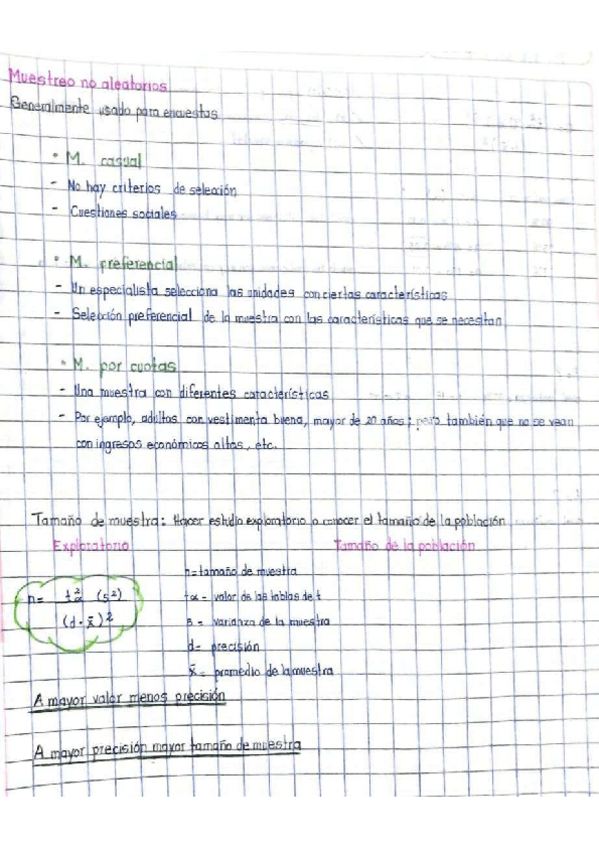 Muestreo no aleatorios
Generalmente usado para encuestas
• M. casual
- No hay criterios de selección
- Cuestiones sociales
• M. preferencial
- Un especialista selecciona las unidades con ciertas características
- Selección preferencial de la muestra con las características que se necesitan
• M. por cuotas
- Una muestra con diferentes características
- Por ejemplo, adultos con vestimenta buena, mayor de 20 años; pero también que no se vean
con ingresos económicos altos, etc.
Tamaño de muestra: Hacer estudio exploratorio o conocer el tamaño de la población
Exploratorio Tamaño de la población
n = t²α (s²) / (d · x̄)²
n = tamaño de muestra
tα = valor de las tablas de t
s = varianza de la muestra
d = precisión
x̄ = promedio de la muestra
A mayor valor menos precisión
A mayor precisión mayor tamaño de muestra